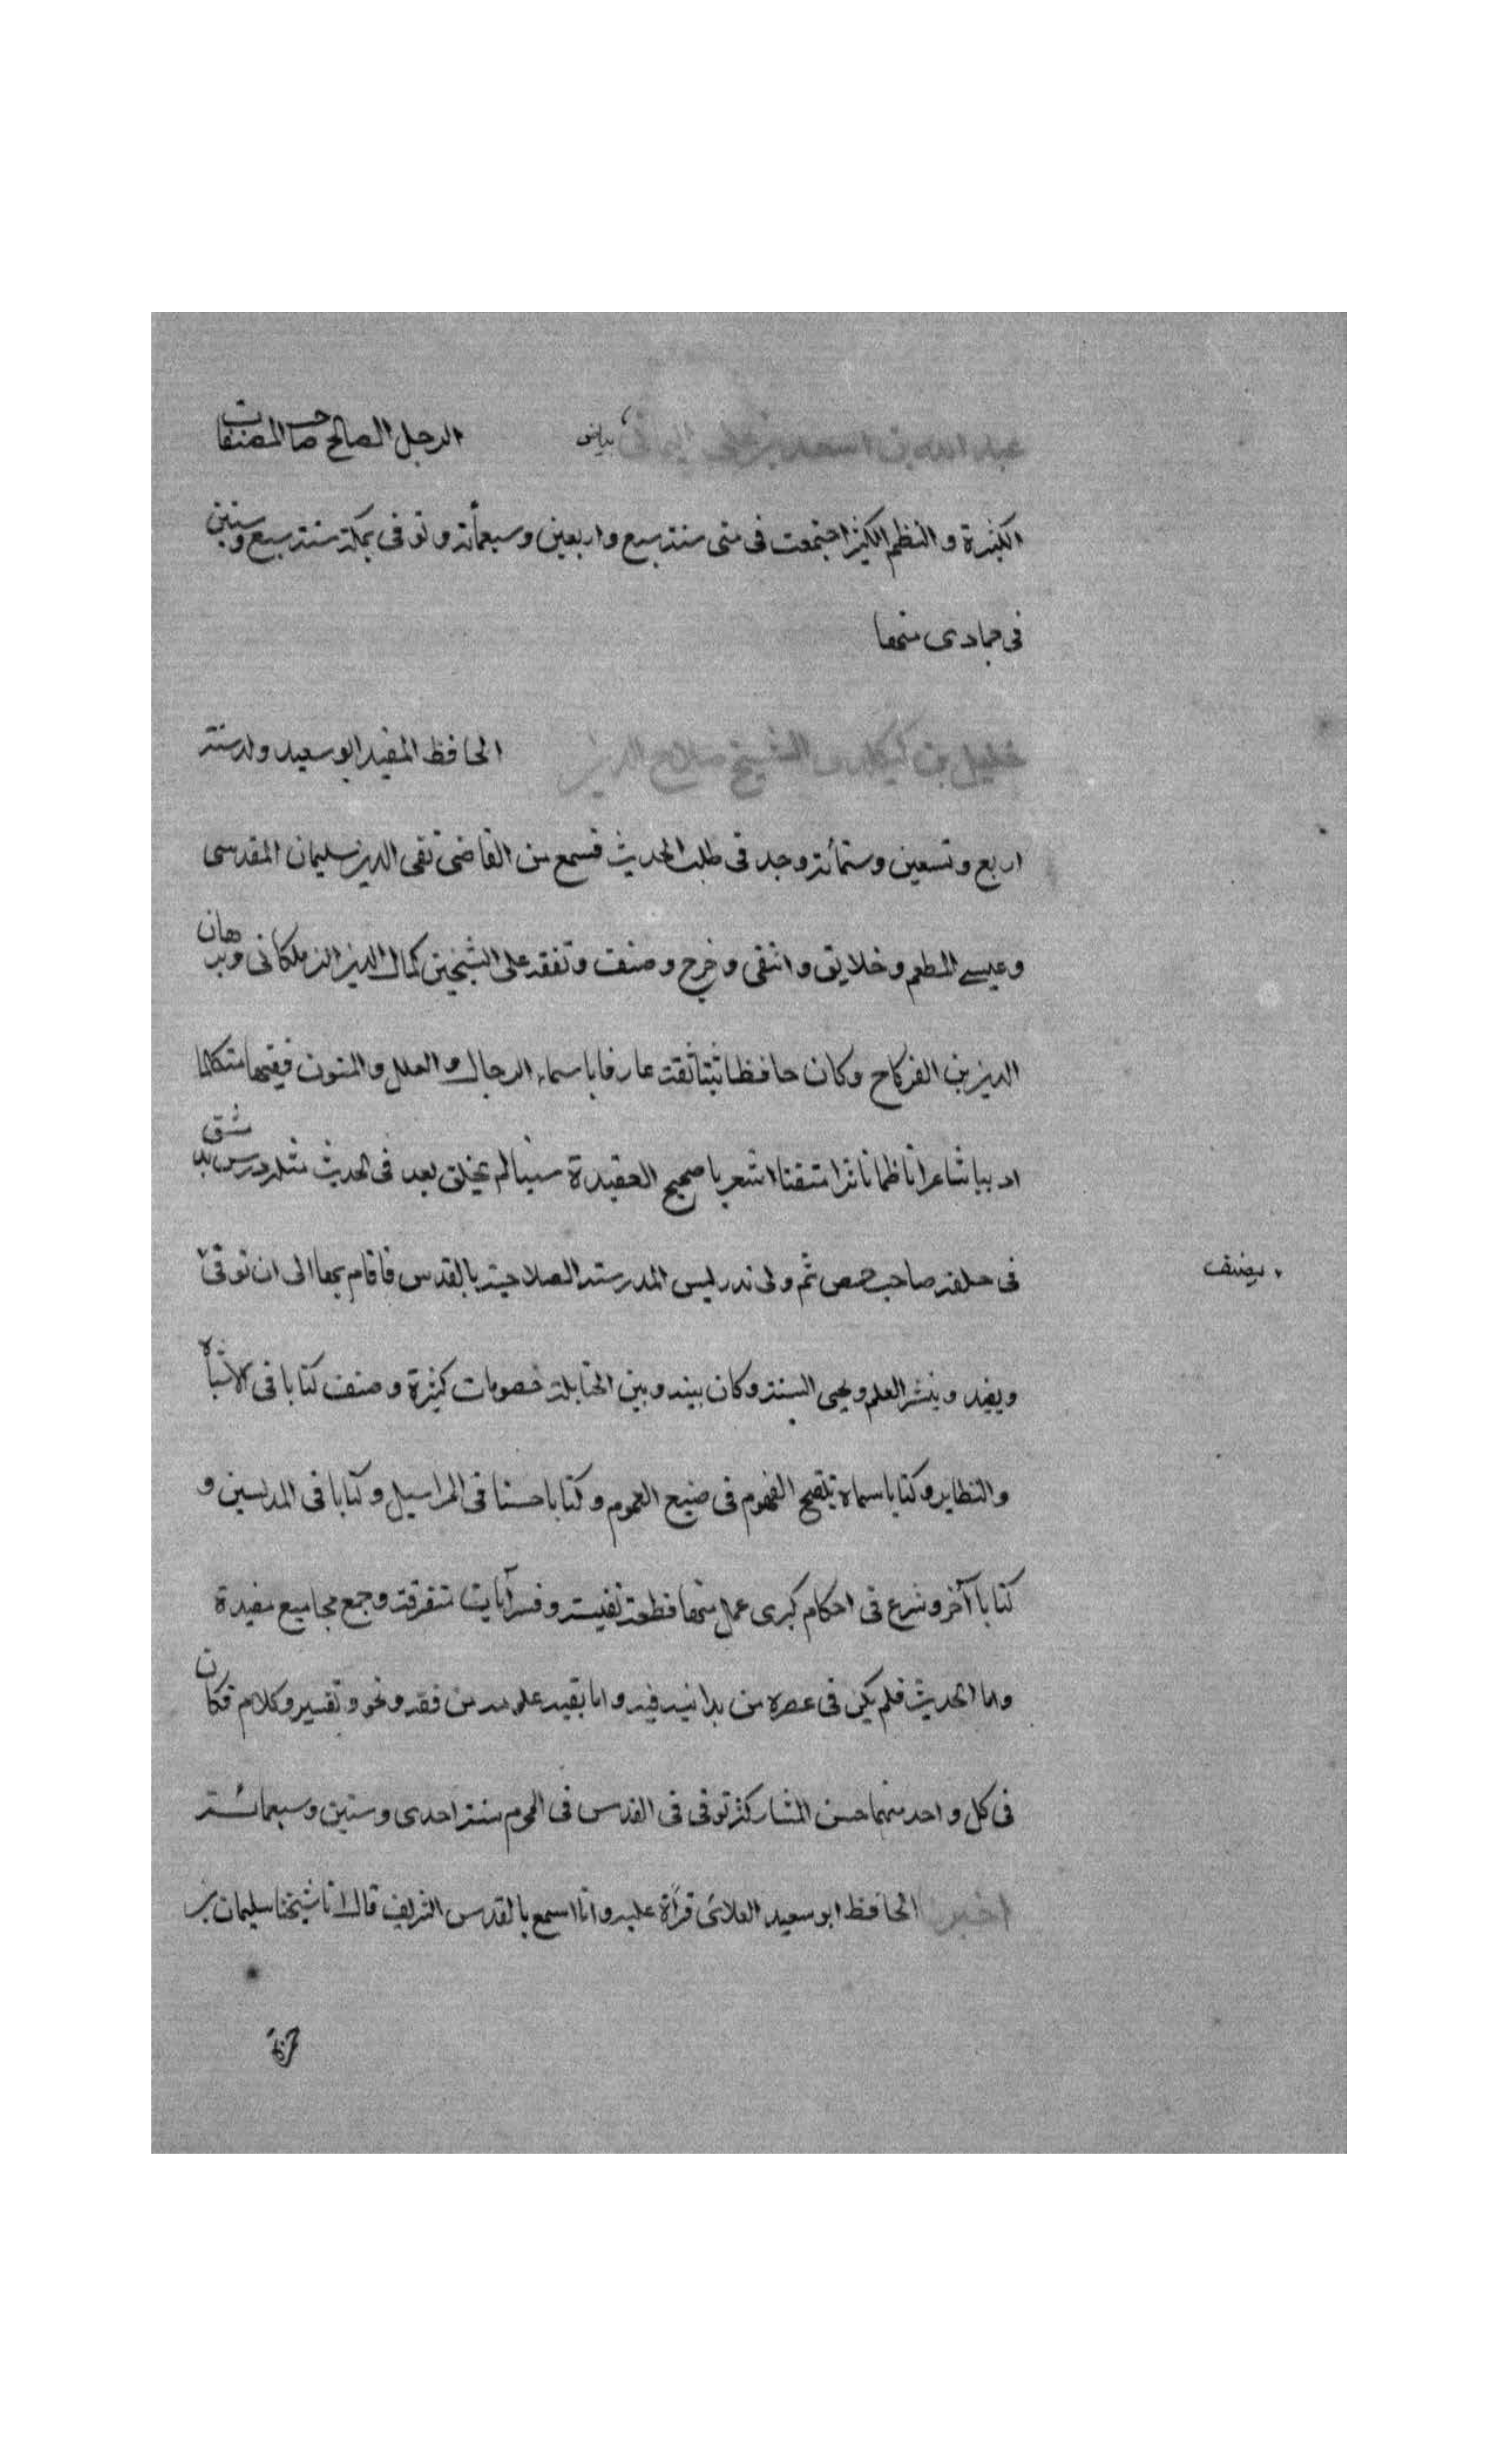 عبد الله بن اسعد بن علي اليماني بياض الرجل الصالح صاحب المصنفات
الكثيرة و النظم الكثير اجتمعت فى منى سنة سبع واربعين وسبعمأة و توفى بمكة سنة سبع وستين
فى جمادى منها
خليل بن كيكلدى الشيخ صلاح الدين الحافظ المفيد ابو سعيد ولد سنة
اربع و تسعين و ستمأة وجد فى طلب الحديث فسمع من القاضى تقى الدين سليمان المقدسى
وعيسے المطعم و خلايق و انتقى و خرج و صنف و تفقه على الشيخين كمال الدين الزملكانى وبرهان
الدين بن الفركاح وكان حافظا ثبتا ثقة عارفا باسماء الرجال و العلل و المتون فقيها متكلما
اديبا شاعرا ناظما ناثرا متقنا اشعريا صحيح العقيدة سنيا لم يخلق بعد فى الحديث مثله درس بدمشق
فى حلقة صاحب حمص ثم ولى تدريس المدرسة الصلاحية بالقدس فاقام بها الى ان توفى
يصنف
ويفيد و ينشر العلم و يحيى السنة وكان بينه و بين الحنابلة خصومات كثيرة و صنف كتابا فى الاشباه
والنظاير و كتابا سماه تنقيح الفهوم فى صنيع العموم و كتابا حسنا فى المراسيل و كتابا فى المدلسين و
كتابا آخر و شرع فى احكام كبرى عمل منها قطعة نفيسة و فسر آيات متفرقة و جمع مجاميع مفيدة
واما الحديث فلم يكن فى عصره من يدانيه فيه و اما بقية علومه من فقه و نحو و تفسير و كلام فكان
فى كل واحد منها حسن المشاركة توفى فى القدس فى المحرم سنة احدى و ستين و سبعمائة
اخبرنا الحافظ ابو سعيد العلائى قرأة عليه و انا اسمع بالقدس الشريف قال انا شيخنا سليمان بن
حمزة